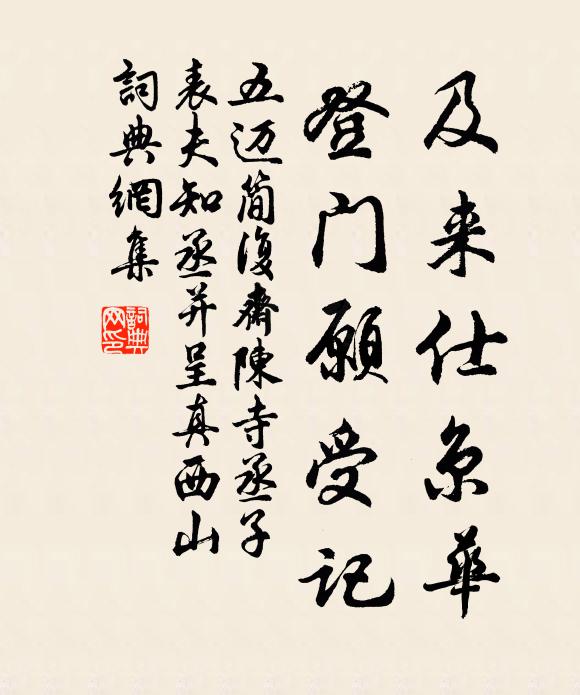 及来仕京華
登门願受记
五迈简復齋陳寺丞子
表夫知丞并呈真西山
詞典網集
詞典网印